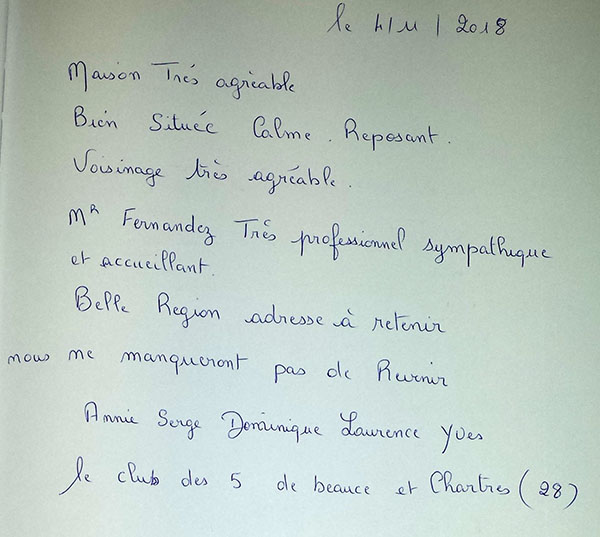 le 4/11/2018
Maison Très agréable
Bien Située Calme. Reposant.
Voisinage très agréable.
MR Fernandez Très professionnel sympathique
et accueillant.
Belle Region adresse à retenir
nous ne manqueront pas de Revenir
Annie Serge Dominique Laurence Yves
le club des 5 de beauce et Chartres (28)